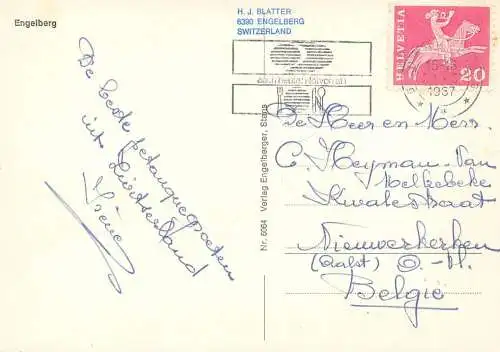 Engelberg
H. J. BLATTER
6390 ENGELBERG
SWITZERLAND
HELVETIA
20
1967
De beste
petanquegroeten
uit Zwitserland
Nr. 6064 Verlag Engelberger, Stans
De Heer en Mevr.
C. Heyman-Van
Melkebeke
Kwalestraat
Nieuwerkerken
(Aalst) O.-Vl.
België